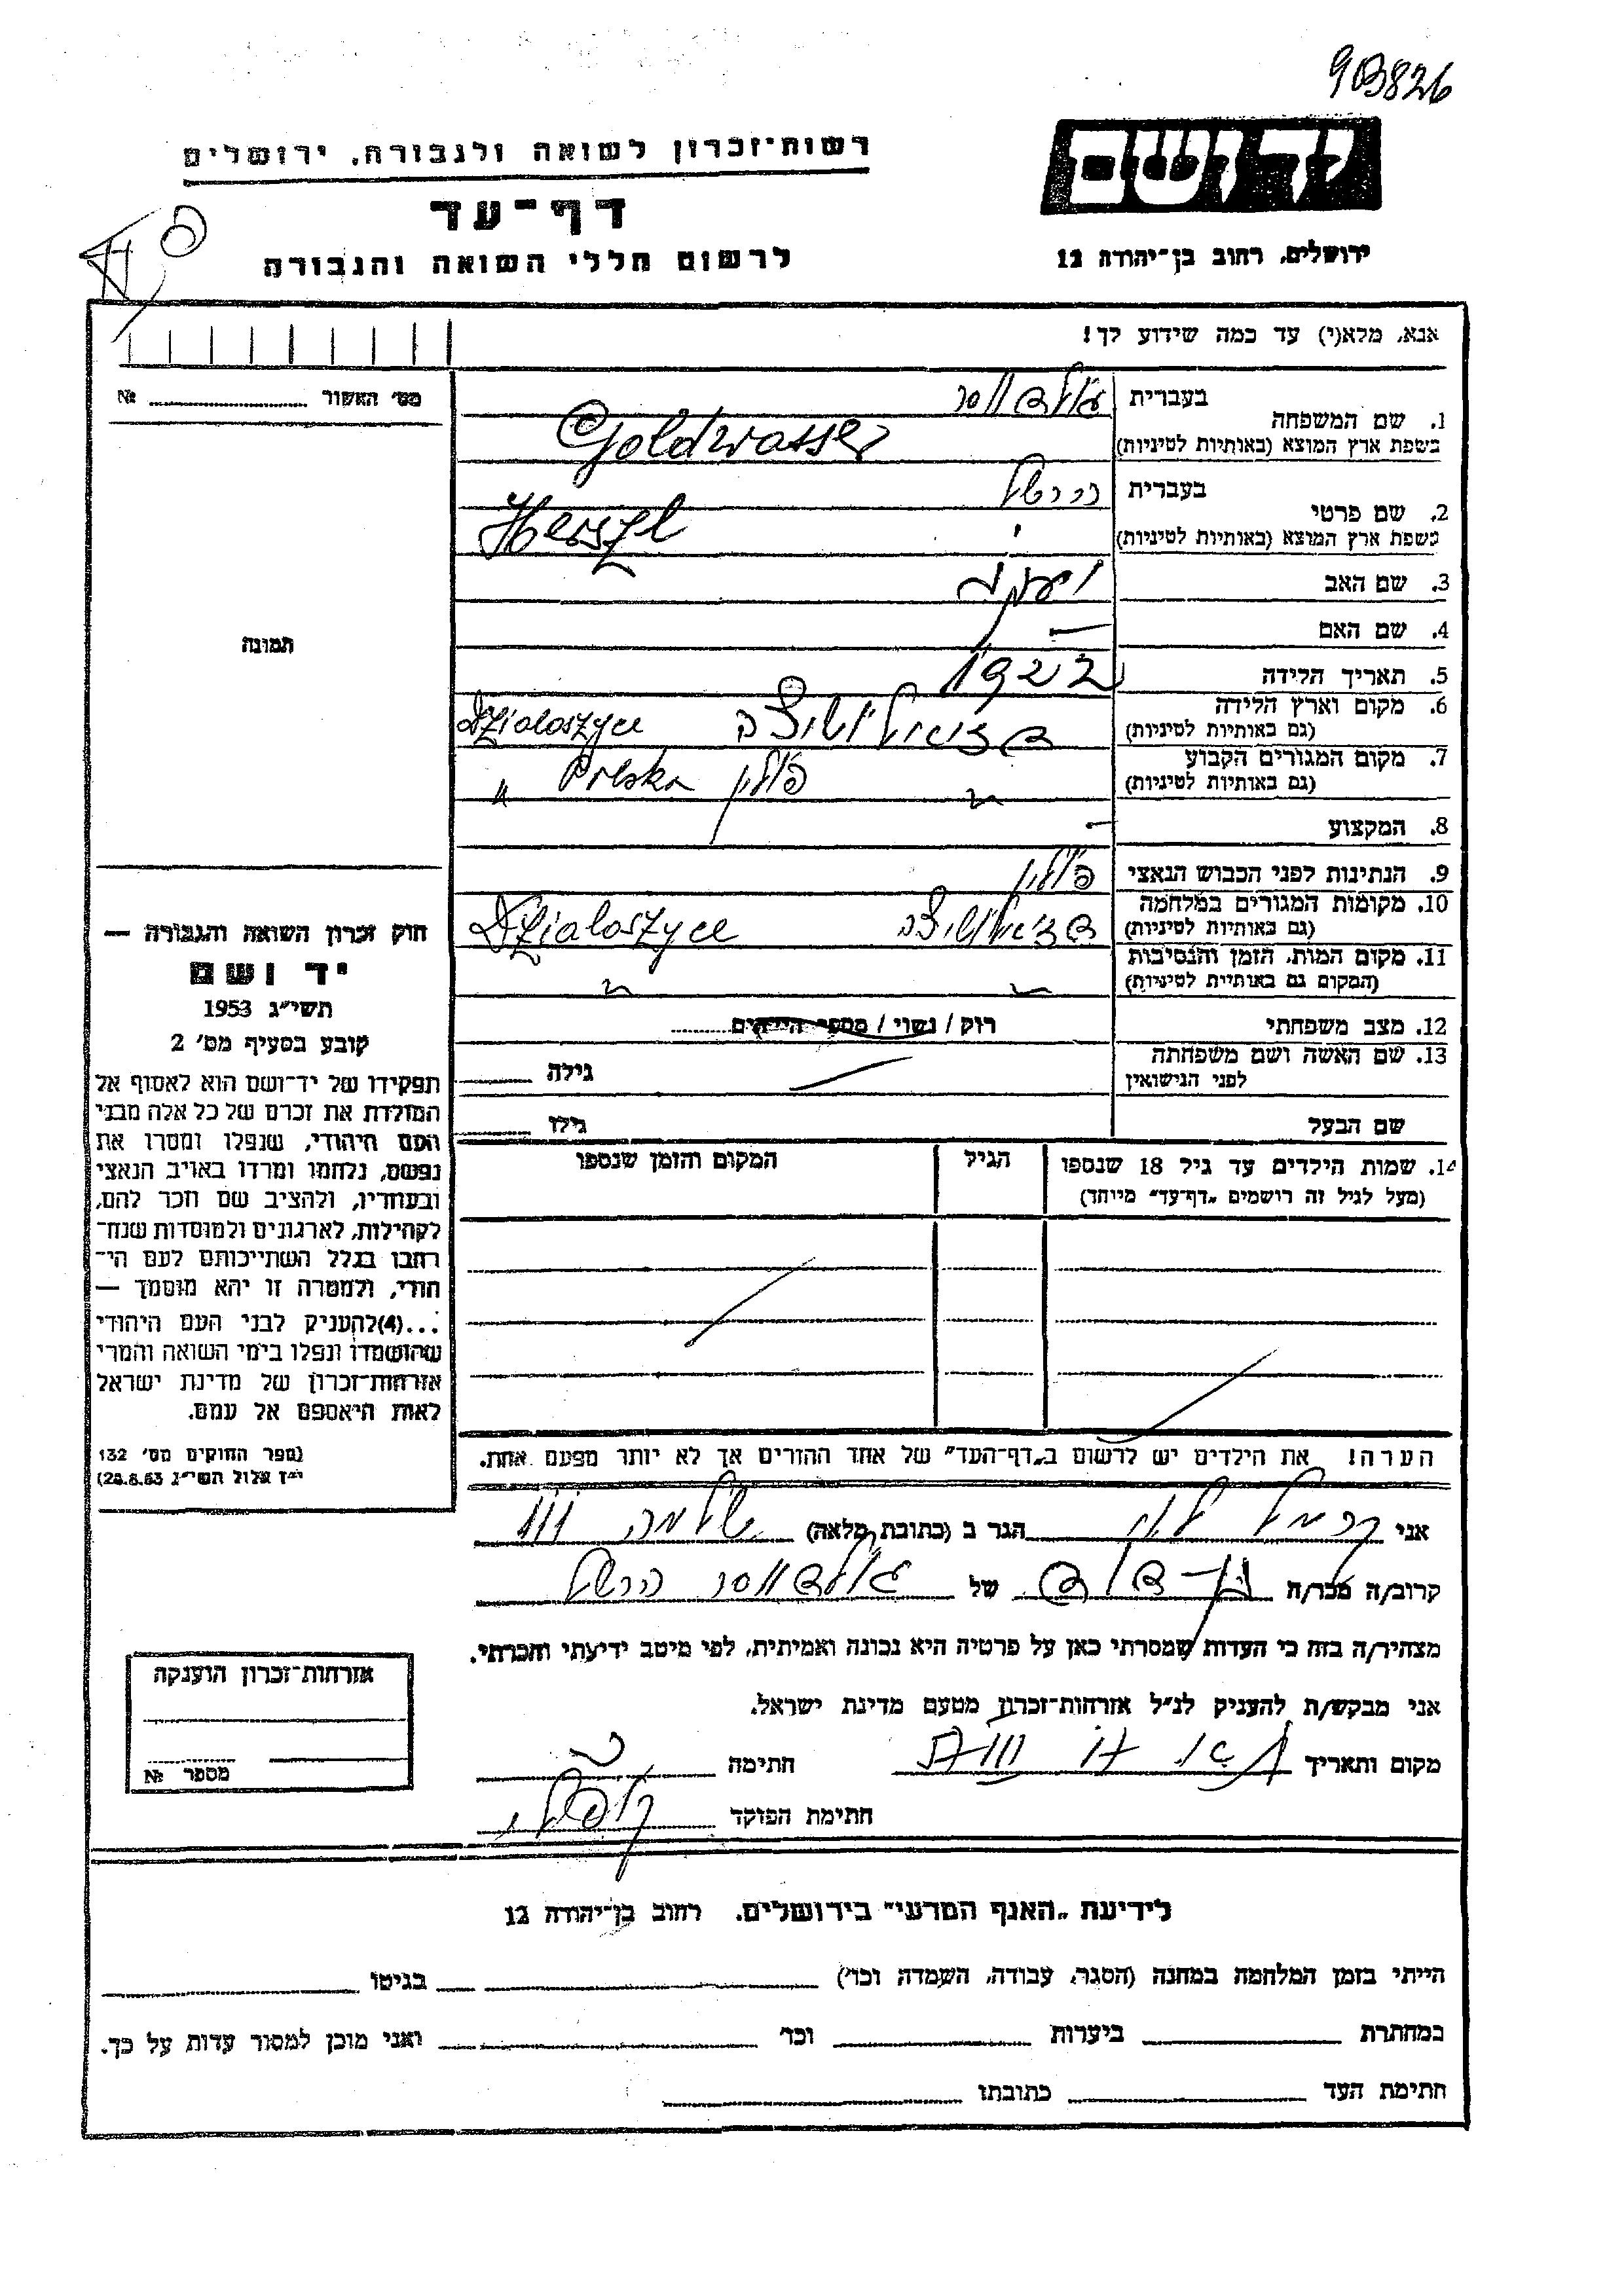 903826
יד ושם
רשות־זכרון לשואה ולגבורה, ירושלים
דף־עד
לרשום חללי השואה והגבורה
ירושלים, רחוב בן־יהודה 12
אנא, מלא(י) עד כמה שידוע לך!
מס׳ האשור № 
1. שם המשפחה בעברית גולדווסר
בשפת ארץ המוצא (באותיות לטיניות) Goldwasser
2. שם פרטי בעברית הרשל
בשפת ארץ המוצא (באותיות לטיניות) Herszl
3. שם האב יעקב
4. שם האם —
5. תאריך הלידה 1922
6. מקום וארץ הלידה Dzialoszyce
(גם באותיות לטיניות)
7. מקום המגורים הקבוע פולין Polska "
(גם באותיות לטיניות)
8. המקצוע —
9. הנתינות לפני הכבוש הנאצי פולין
10. מקומות המגורים במלחמה Dzialoszyce
(גם באותיות לטיניות)
11. מקום המות, הזמן והנסיבות
(המקום גם באותיות לטיניות)
12. מצב משפחתי רוק / נשוי / מספר הילדים
13. שם האשה ושם משפחתה גילה
לפני הנישואין
שם הבעל גילו
14. שמות הילדים עד גיל 18 שנספו הגיל המקום והזמן שנספו
(מעל לגיל זה רושמים „דף־עד" מיוחד)
הערה! את הילדים יש לרשום ב„דף־העד" של אחד ההורים אך לא יותר מפעם אחת.
תמונה
חוק זכרון השואה והגבורה —
יד ושם
תשי״ג 1953
קובע בסעיף מס׳ 2
תפקידו של יד־ושם הוא לאסוף אל
המולדת את זכרם של כל אלה מבני
העם היהודי, שנפלו ומסרו את
נפשם, נלחמו ומרדו באויב הנאצי
ובעוזריו, ולהציב שם וזכר להם,
לקהילות, לארגונים ולמוסדות שנח־
רבו בגלל השתייכותם לעם הי־
הודי, ולמטרה זו יהא מוסמך —
...(4)להעניק לבני העם היהודי
שהושמדו ונפלו בימי השואה והמרי
אזרחות־זכרון של מדינת ישראל
לאות היאספם אל עמם.
(ספר החוקים מס׳ 132
י״ז אלול תשי״ג 28.8.53)
אני הגר ב (כתובת מלאה) שלמה
קרוב/ה מכר/ה בן דוד של גולדווסר הרשל
מצהיר/ה בזה כי העדות שמסרתי כאן על פרטיה היא נכונה ואמיתית, לפי מיטב ידיעתי והכרתי.
אני מבקש/ת להעניק לנ״ל אזרחות־זכרון מטעם מדינת ישראל.
מקום ותאריך חתימה
חתימת הפוקד
אזרחות־זכרון הוענקה
מספר №
לידיעת „האגף המדעי" בירושלים, רחוב בן־יהודה 12
הייתי בזמן המלחמה במחנה (הסגר, עבודה, השמדה וכו׳) בגיטו
במחתרת ביערות וכו׳ ואני מוכן למסור עדות על כך.
חתימת העד כתובתו